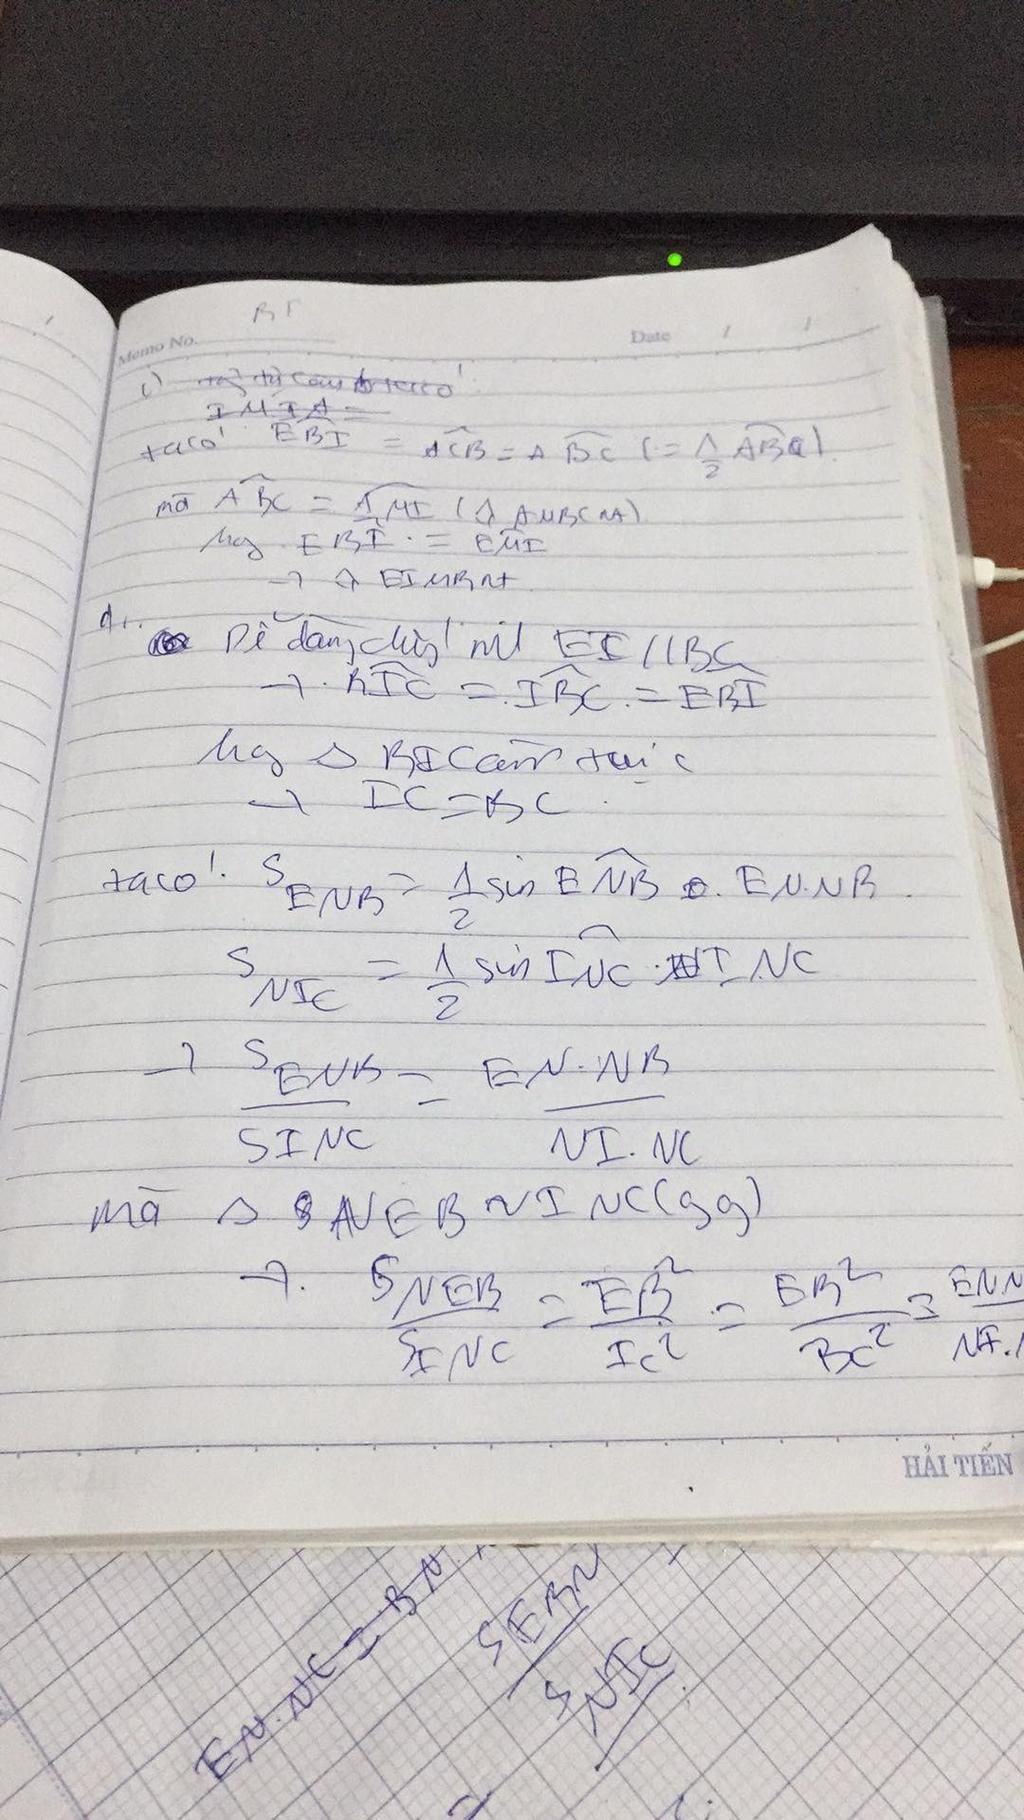 BI
Memo No.
Date / /
c)
IMIA =
taco' EBI = ACB = ABC (= 1/2 ABC)
mà ABC = AMI (◊ AMBC nt)
hay EBI = EMI
→ ◊ EIMB nt
d.
Dễ dàng c/m EI // BC
→ BIC = IBC = EBI
hay Δ BIC cân tại c
→ IC = BC
taco'. S ENB = 1/2 sin ENB . EN.NB
S NIC = 1/2 sin INC . NI.NC
→ S ENB / S INC = EN.NB / NI.NC
mà Δ NEB ~ INC (gg)
→ S NEB / S INC = EB² / IC² = EB² / BC² =
HẢI TIẾN
EN.NC = BN.
S EBN / S NIC